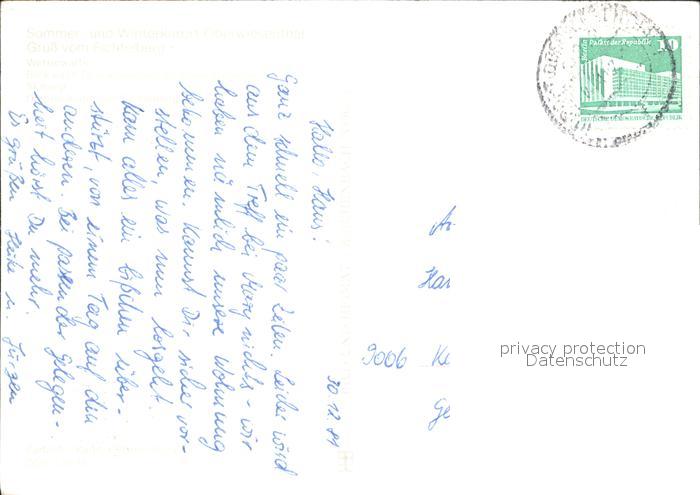 Sommer- und Winterkurort Oberwiesenthal
Gruß vom Fichtelberg
Wetterwarte
Hallo, Hans!
Ganz schnell ein paar Zeilen. Leider wird
aus dem Treff bei Mary nichts - wir
haben nämlich unsere Wohnung
bekommen. Kannst Dir sicher vor-
stellen, was nun losgeht.
Kam alles ein bißchen über-
stürzt, von einem Tag auf den
anderen. Bei passender Gelegen-
heit hörst Du mehr.
Es grüßen Heike u. Jürgen
30.12.84
Berlin, Palast der Republik
10
DEUTSCHE DEMOKRATISCHE REPUBLIK
An
Han
9006 Ke
Ge
privacy protection
Datenschutz